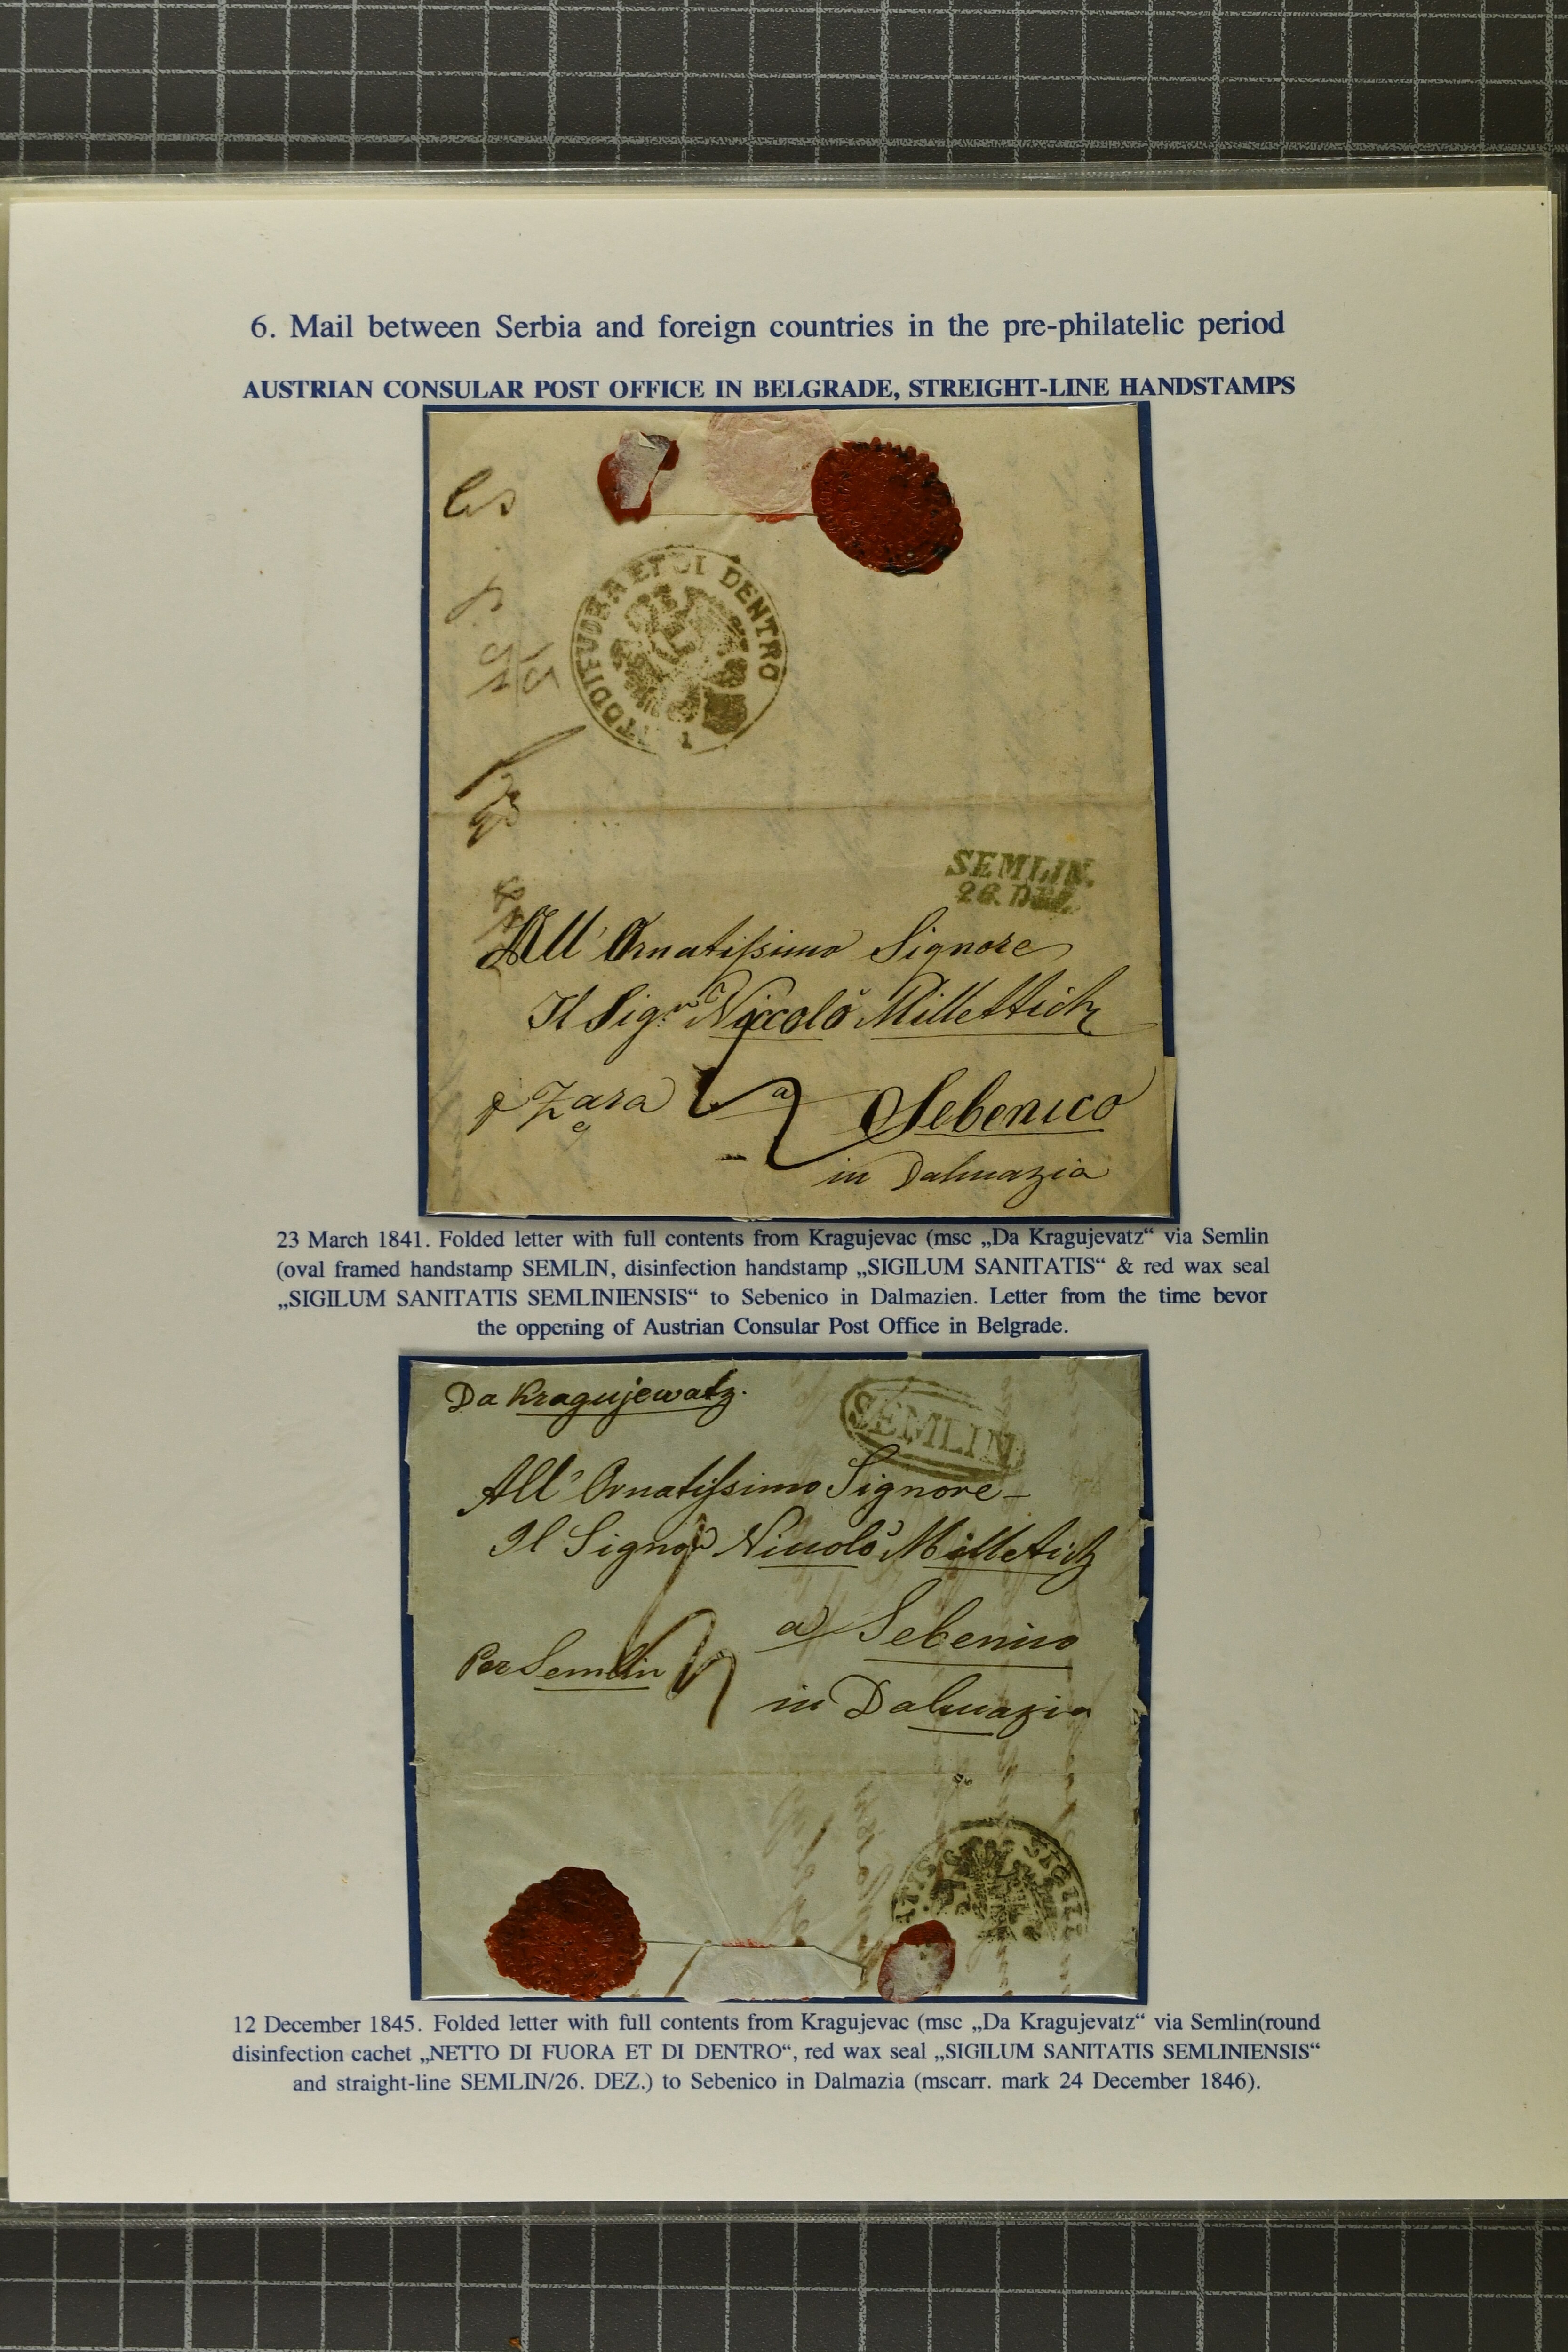 6. Mail between Serbia and foreign countries in the pre-philatelic period
AUSTRIAN CONSULAR POST OFFICE IN BELGRADE, STREIGHT-LINE HANDSTAMPS
DI FUORA ET DI DENTRO
SEMLIN.
26. DEZ.
All' Ornatissimo Signore
Il Sigr. Niccolò Millettich
p Zara a Sebenico
in Dalmazia
23 March 1841. Folded letter with full contents from Kragujevac (msc „Da Kragujevatz“ via Semlin
(oval framed handstamp SEMLIN, disinfection handstamp „SIGILUM SANITATIS“ & red wax seal
„SIGILUM SANITATIS SEMLINIENSIS“ to Sebenico in Dalmazien. Letter from the time bevor
the oppening of Austrian Consular Post Office in Belgrade.
Da Kragujewatz.
SEMLIN
All' Ornatissimo Signore
Il Signor Niccolò Millettich
a Sebenico
Per Semlin
in Dalmazia
SIGILL
12 December 1845. Folded letter with full contents from Kragujevac (msc „Da Kragujevatz“ via Semlin(round
disinfection cachet „NETTO DI FUORA ET DI DENTRO“, red wax seal „SIGILUM SANITATIS SEMLINIENSIS“
and straight-line SEMLIN/26. DEZ.) to Sebenico in Dalmazia (mscarr. mark 24 December 1846).